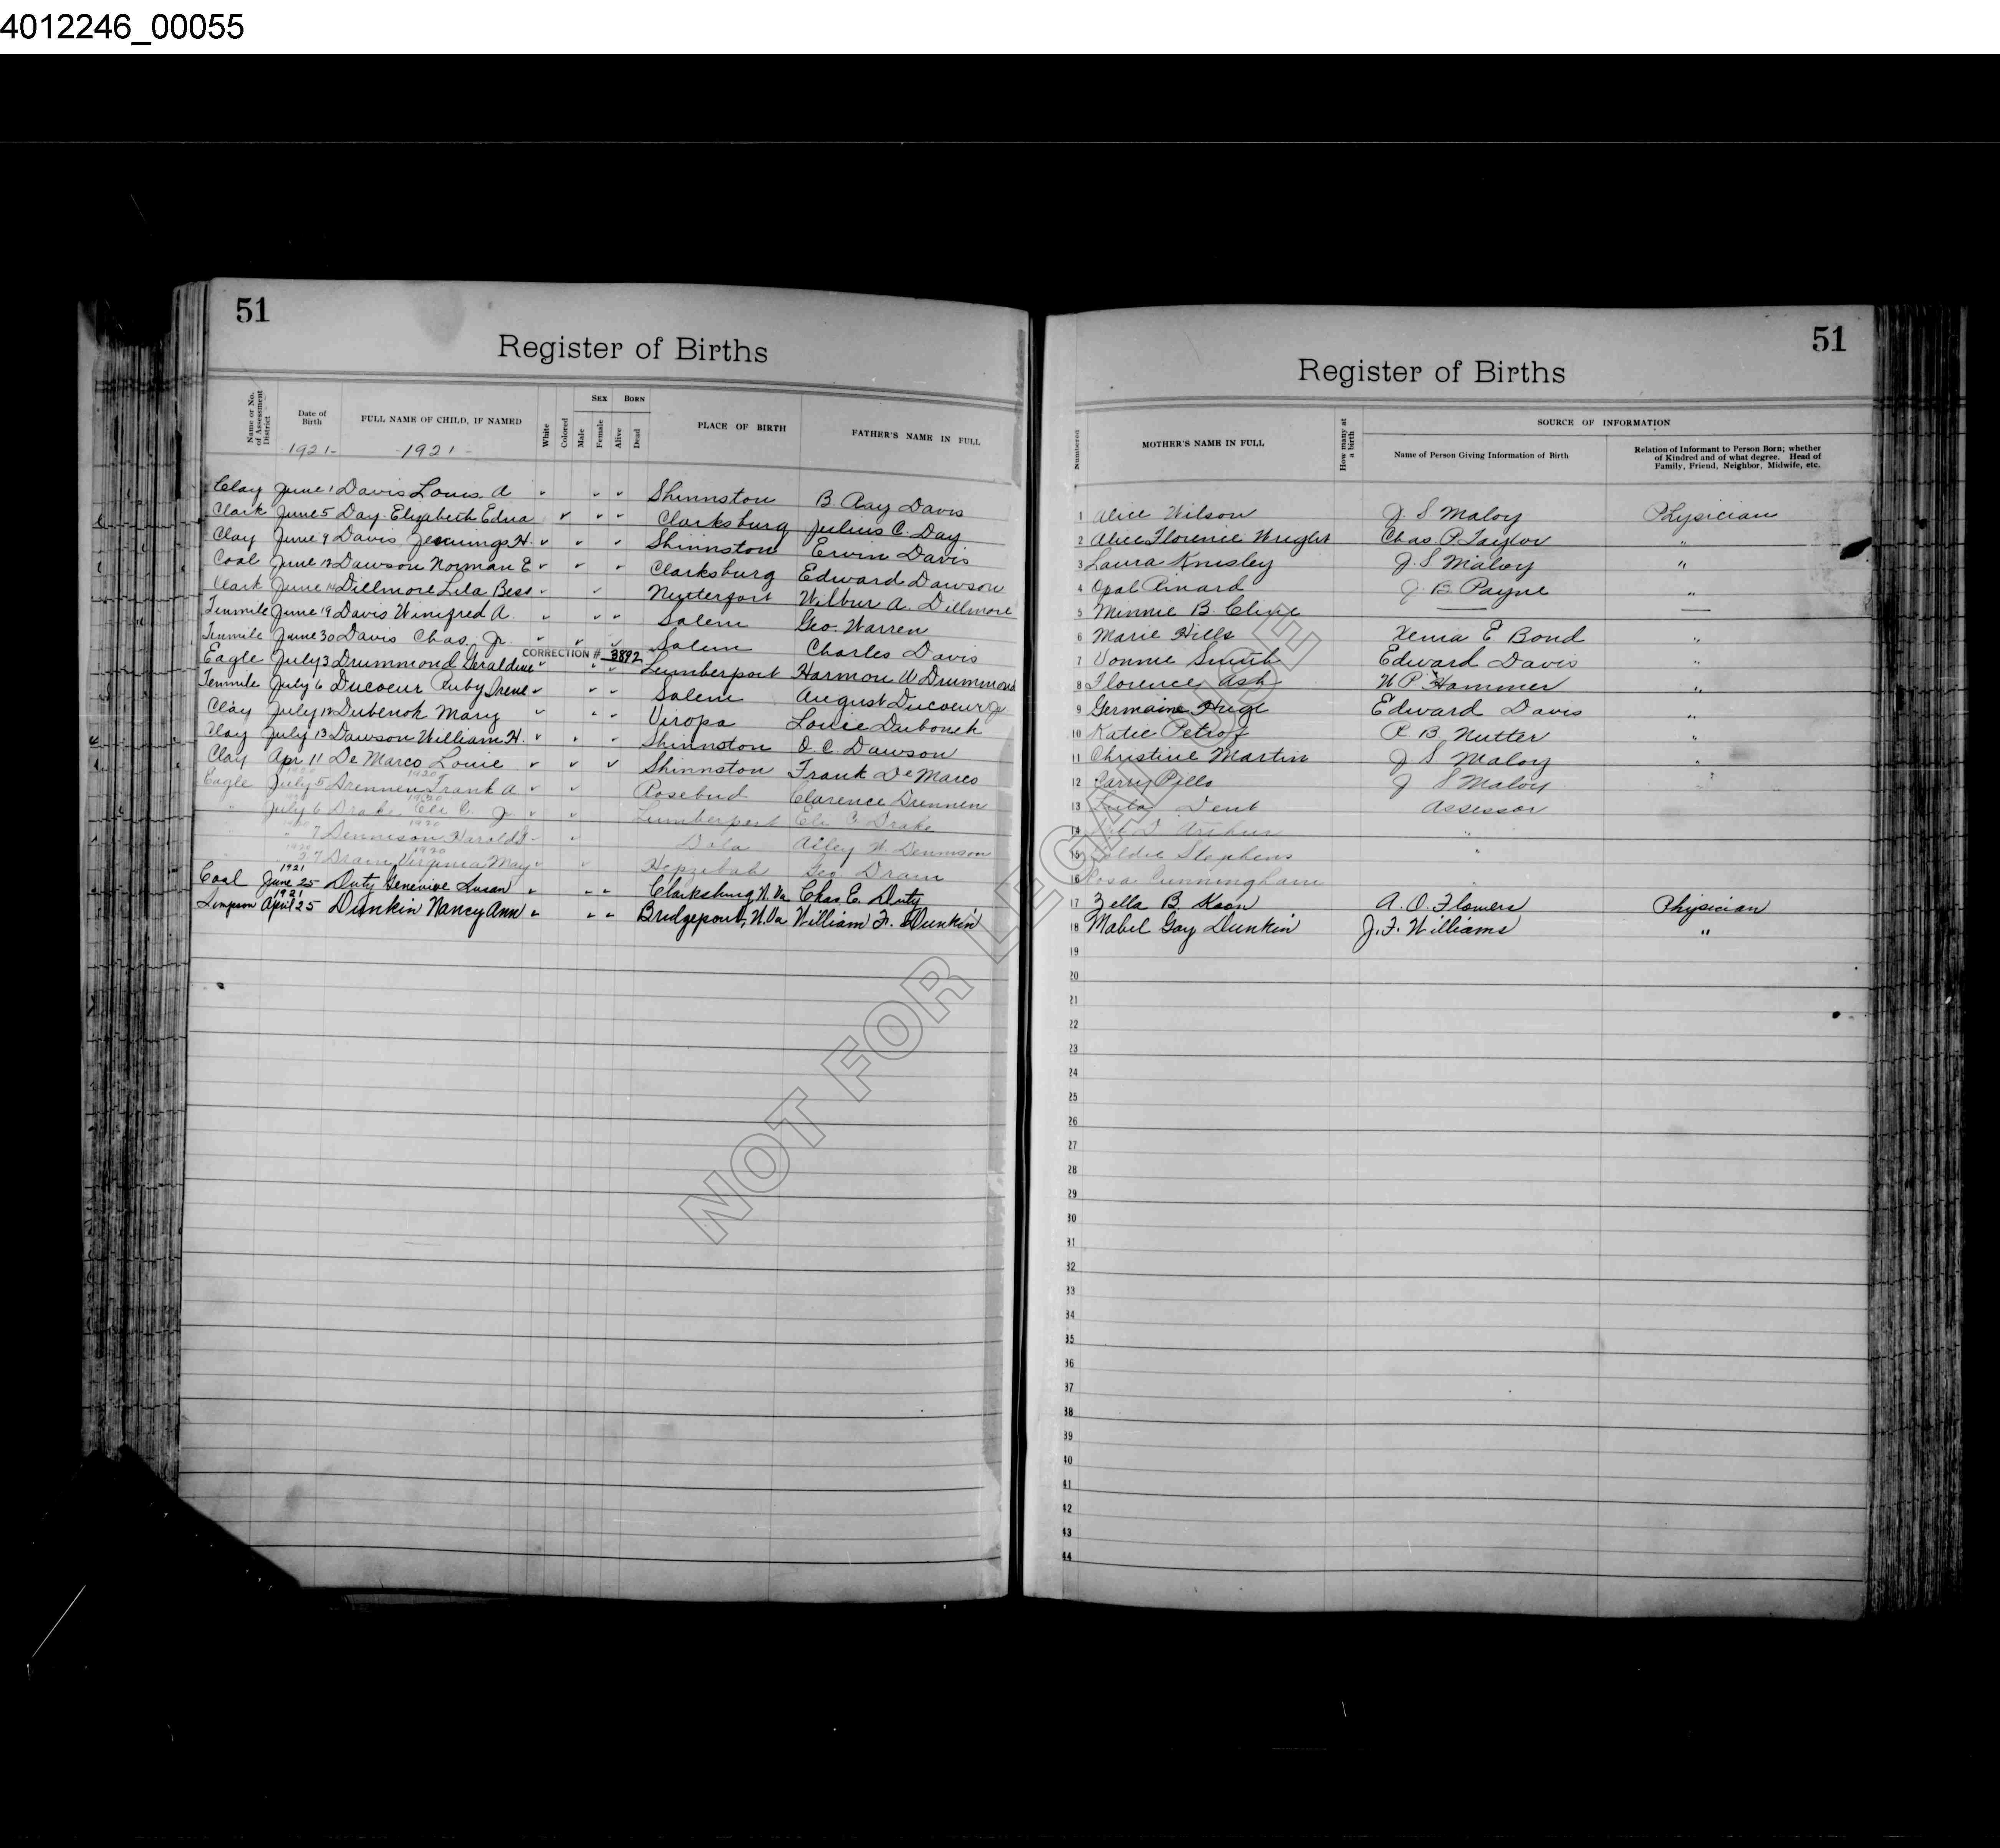 4012246_00055
51
Register of Births
Name or No. of Assessment District
Date of Birth
FULL NAME OF CHILD, IF NAMED
White
Colored
SEX
Male
Female
BORN
Alive
Dead
PLACE OF BIRTH
FATHER'S NAME IN FULL
-1921-
-1921-
Clay June 1 Davis Louis A Shinnston B Ray Davis
Clark June 5 Day Elizabeth Edna Clarksburg Julius C. Day
Clay June 9 Davis Jennings H. Shinnston Ervin Davis
Coal June Dawson Norman E Clarksburg Edward Dawson
Clark June Dillmore Lila Bess Nutterfort Wilbur A. Dillmore
Tenmile June 19 Davis Winifred A. Salem Geo. Warren
Tenmile June 30 Davis Chas. Jr. Salem Charles Davis
CORRECTION # 3892
Eagle July 3 Drummond Geraldine Lumberport Harmon W Drummond
Tenmile July 6 Ducoeur Ruby Irene Salem August Ducoeur Jr
Clay July 12 Dubenok Mary Viropa Louie Dubonek
Clay July 13 Dawson William H. Shinnston O. C. Dawson
Clay Apr 11 De Marco Louie Shinnston Frank De Marco
Eagle July 5 1920 Drennen Frank A Rosebud Clarence Drennen
" July 6 1920 Drake Ele C. Jr Lumberport Ele C Drake
" 7 1920 Dennison Harold Dola Ailey W. Dennison
27 1920 Drain Virginia May Hepzibah Geo Drain
Coal 1921 June 25 Duty Genevive Susan Clarksburg W. Va Chas. E. Duty
Simpson 1921 April 25 Dunkin Nancy Ann Bridgeport, W. Va William F. Dunkin
51
Register of Births
Numbered
MOTHER'S NAME IN FULL
How many at a birth
SOURCE OF INFORMATION
Name of Person Giving Information of Birth
Relation of Informant to Person Born; whether of Kindred and of what degree. Head of Family, Friend, Neighbor, Midwife, etc.
1 Alice Wilson J. S Maloy Physician
2 Alice Florence Wright Chas. P. Taylor "
3 Laura Knisley J. S Maloy "
4 Opal Rinard J. B. Payne "
5 Minnie B. Cline — —
6 Marie Hills Xenia E Bond "
7 Vonnie Smith Edward Davis "
8 Florence Ash W P Hammer "
9 Germaine Huge Edward Davis "
10 Katie Petrof R B Nutter "
11 Christine Martin J S Maloy "
12 Carry Pello J S Maloy
13 Lula Dent Assessor
14 Arthur "
15 Goldie Stephens "
16 Rosa Cunningham
17 Zella B. Koon A. O. Flowers Physician
18 Mabel Gay Dunkin J. F. Williams "
19
20
21
22
23
24
25
26
27
28
29
30
31
32
33
34
35
36
37
38
39
40
41
42
43
44
NOT FOR LEGAL USE